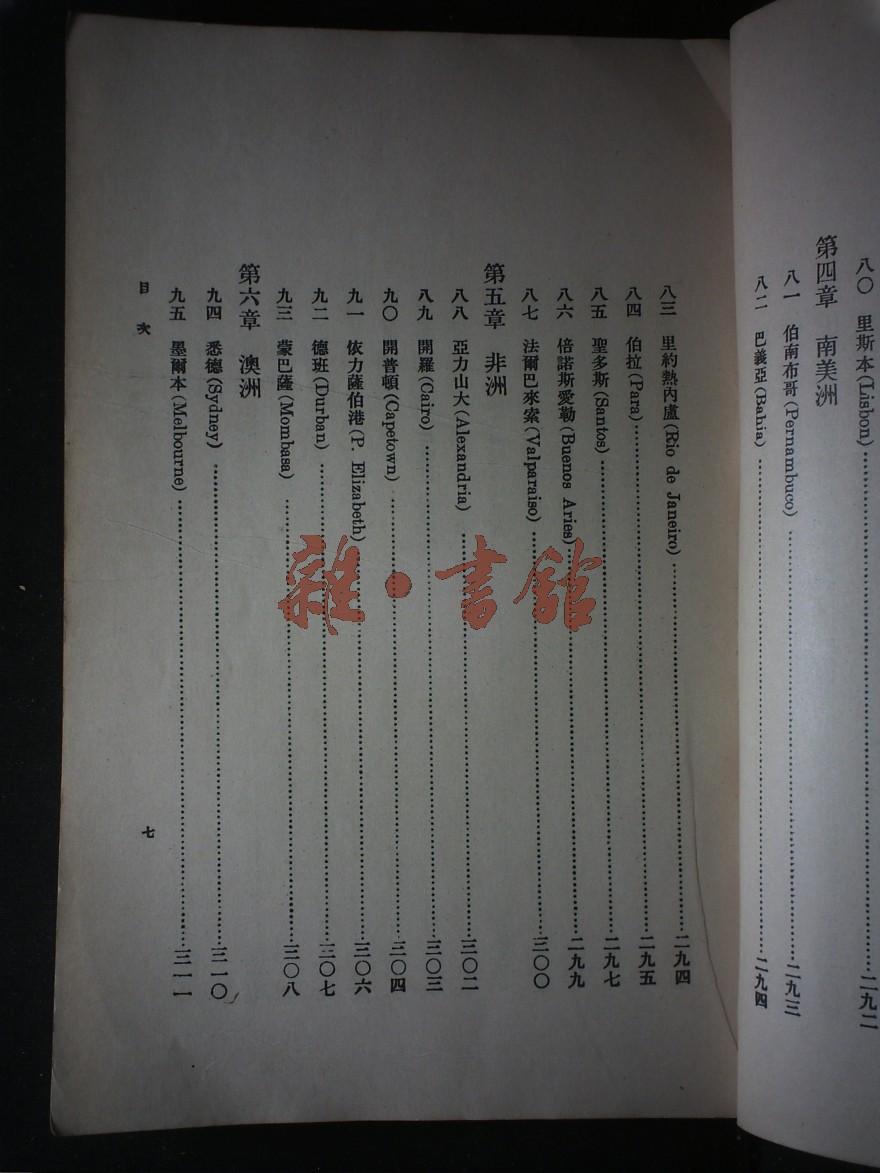 八〇 里斯本(Lisbon)……二九二
第四章 南美洲
八一 伯南布哥(Pernambuco)……二九三
八二 巴義亞(Bahia)……二九四
八三 里約熱內盧(Rio de Janeiro)……二九四
八四 伯拉(Para)……二九五
八五 聖多斯(Santos)……二九七
八六 倍諾斯愛勒(Buenos Aries)……二九九
八七 法爾巴來索(Valparaiso)……三〇〇
第五章 非洲
八八 亞力山大(Alexandria)……三〇二
八九 開羅(Cairo)……三〇三
九〇 開普頓(Capetown)……三〇四
九一 依力薩伯港(P. Elizabeth)……三〇六
九二 德班(Durban)……三〇七
九三 蒙巴薩(Mombasa)……三〇八
第六章 澳洲
九四 悉德(Sydney)……三一〇
九五 墨爾本(Melbourne)……三一一
目次
七
雜·書館